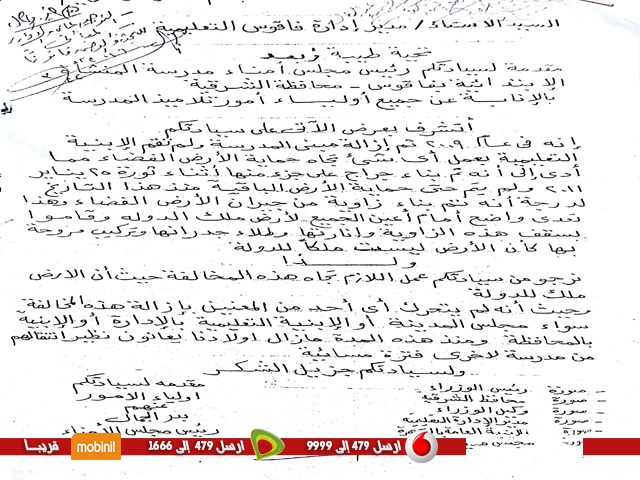 السيد الأستاذ / مدير إدارة فاقوس التعليمية
تحية طيبة وبعد
مقدمة لسيادتكم رئيس مجلس أمناء مدرسة
الابتدائية بفاقوس - محافظة الشرقية
بالإنابة عن جميع أولياء أمور تلاميذ المدرسة
أتشرف بعرض الآتى على سيادتكم
إنه فى عام ٢٠٠٩ تم إزالة مبنى المدرسة ولم تقم الأبنية
التعليمية بعمل أى شئ تجاه حماية الأرض الفضاء مما
أدى إلى أنه تم بناء جراج على جزء منها أثناء ثورة ٢٥ يناير
٢٠١١ ولم يتم حتى حماية الأرض الباقية منذ هذا التاريخ
لدرجة أنه تم بناء زاوية من جيران الأرض الفضاء وهذا
تعدى واضح أمام أعين الجميع لأرض ملك الدولة وقاموا
بسقف هذه الزاوية وإنارتها وطلاء جدرانها وتركيب مروحة
بها كأن الأرض ليست ملكاً للدولة
ولذا
نرجو من سيادتكم عمل اللازم تجاه هذه المخالفة حيث أن الأرض
ملك للدولة
وحيث أنه لم يتحرك أى أحد من المعنين بإزالة هذه المخالفة
سواء مجلس المدينة أو الأبنية التعليمية بالإدارة أو الأبنية
بالمحافظة ومنذ هذه المدة مازال أولادنا يعانون نظير انتقالهم
من مدرسة لأخرى فترة مسائية
ولسيادتكم جزيل الشكر
مقدمه لسيادتكم
أولياء الأمور
عنهم
بدر الجمال
رئيس مجلس الأمناء
- صورة رئيس الوزراء
- صورة محافظ الشرقية
- صورة وكيل الوزراء
- صورة مدير الإدارة التعليمية
- صورة الأبنية العامة
قريبا mobinil ارسل 479 إلى 1666 ارسل 479 إلى 9999